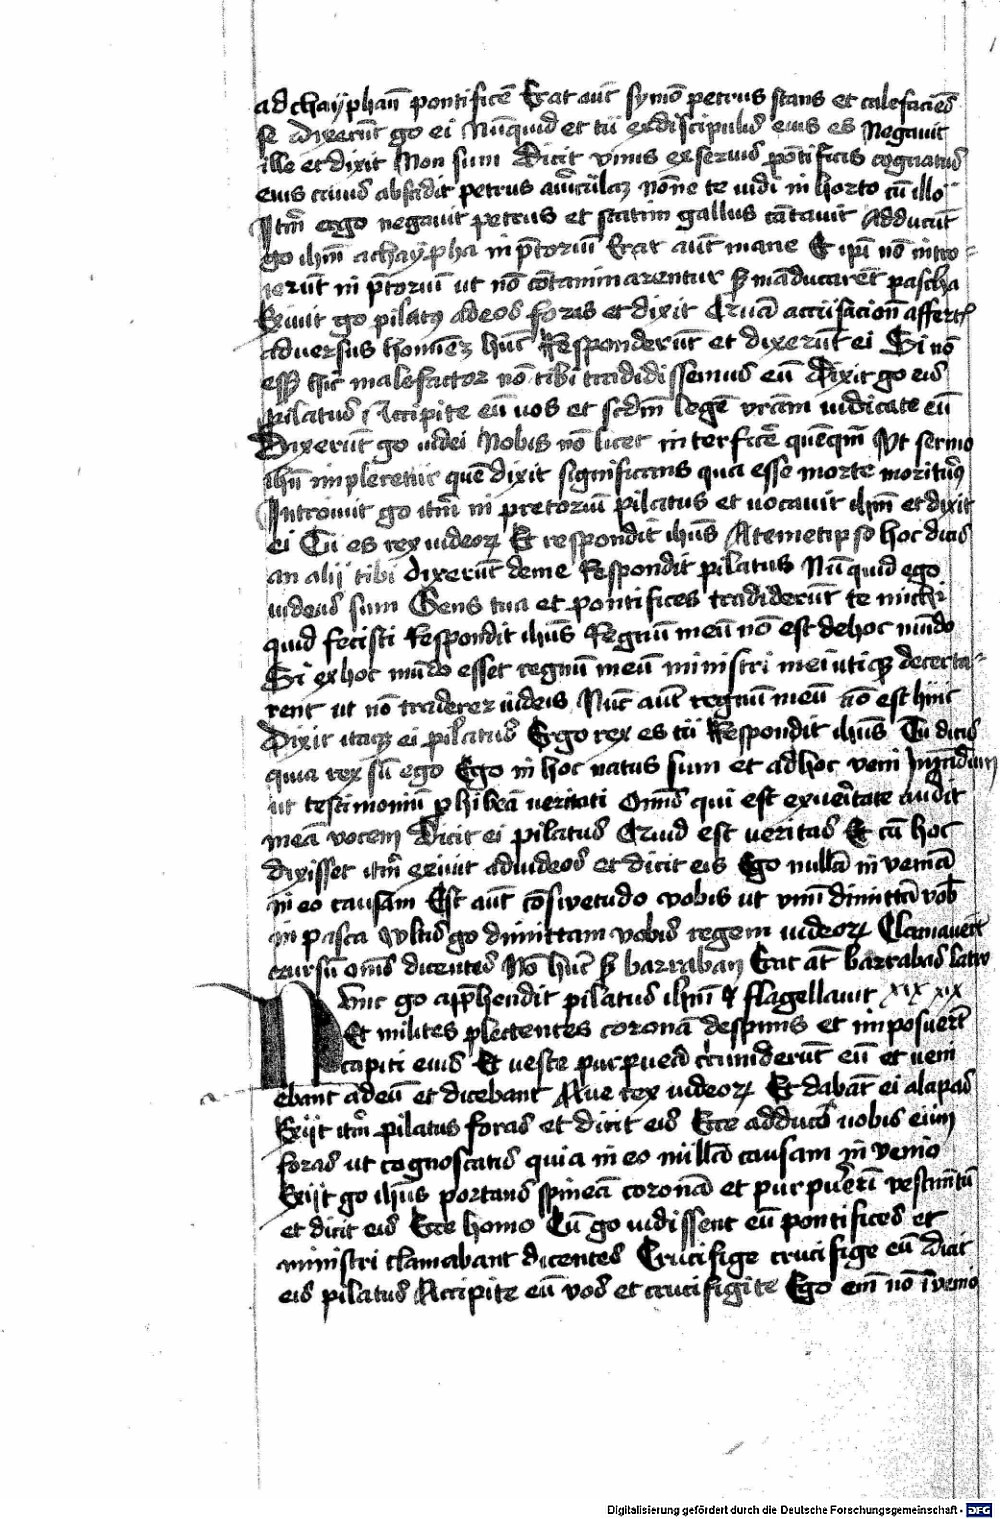 ad chaÿphan̄ pontificē Erat aut̄ symō petrus stans et calefaciēs
se dixerūt g̊o ei Nūquid et tu ex discipulis eius es Negauit
ille et dixit Non sum Dicit vnus ex seruis pōtificis cognatus
eius cuius abscidit petrus auriculaz nōne te uidi in horto cū illo
Itm̄ ergo negauit petrus et statim gallus cātauit Adducūt
g̊o ihm̄ a chaÿpha in p̄toriū Erat aut̄ mane Et ip̄i nō intro
ierūt in p̄toriū ut nō cōtaminarentur sz māducarēt pascha
Exiuit g̊o pilatꝰ ad eos foras et dixit Quā accusacion̄ affertis
aduersus hominez hūc Responderūt et dixerūt ei Si nō
esset hic malefactor nō tibi tradidissemus eū Dixit g̊o eis
pilatus Accipite eū uos et scdm̄ legē vr̄am iudicate eū
Dixerūt g̊o iudei Nobis nō licet interficē quēqm̄ Vt sermo
ihū impleretur quē dixit significans qua esse morte moriturꝰ
Introiuit g̊o itm̄ in pretoriū pilatus et uocauit ihm̄ et dixit
ei Tu es rex iudeoꝝ Et respondit ihūs A temetipso hoc dicis
an alij tibi dixerūt de me Respondit pilatus Nūquid ego
iudeus sum Gens tua et pontifices tradiderūt te michi
quid fecisti Respondit ihūs Regnū meū nō est de hoc mūdo
Si ex hoc mūdo esset regnū meū ministri mei utiqꝫ decerta
rent ut nō traderer iudeis Nūc aut̄ regnū meū nō est hinc
Dixit itaqꝫ ei pilatus Ergo rex es tu Respondit ihūs Tu dicis
quia rex sū ego Ego in hoc natus sum et ad hoc veni in mūdum
ut testimoniū phibeā ueritati Om̄is qui est ex ueritate audit
meā vocem Dicit ei pilatus Quid est ueritas Et cū hoc
dixisset itm̄ exiuit ad iudeos et dicit eis Ego nullā inveniā
in eo causam Est aut̄ cōswetudo vobis ut vnū dimittā vob̄
in pasca Vultis g̊o dimittam vobis regem iudeoꝝ Clamauer̄t
rursū om̄s dicentes Nō hūc sz barraban Erat aūt barrabas latro
Tunc g̊o app̄hendit pilatus ihm̄ et flagellauit xix xix
Et milites plectentes coronā de spinis et imposuer̄t
capiti eius Et ueste purpurea circūdederūt eū et ueni
ebant ad eū et dicebant Aue rex iudeoꝝ Et dabāt ei alapas
Exijt itm̄ pilatus foras et dicit eis Ecce adduco uobis eum
foras ut cognoscatis quia in eo nullā causam in venio
Exijt g̊o ihūs portans spineā coronā et purpureū vestimētū
et dicit eis Ecce homo Cū g̊o uidissent eū pontifices et
ministri clamabant dicentes Crucifige crucifige eū Dicit
eis pilatus Accipite eū vos et crucifigite Ego em̄ nō īvenio
Digitalisierung gefördert durch die Deutsche Forschungsgemeinschaft - DFG